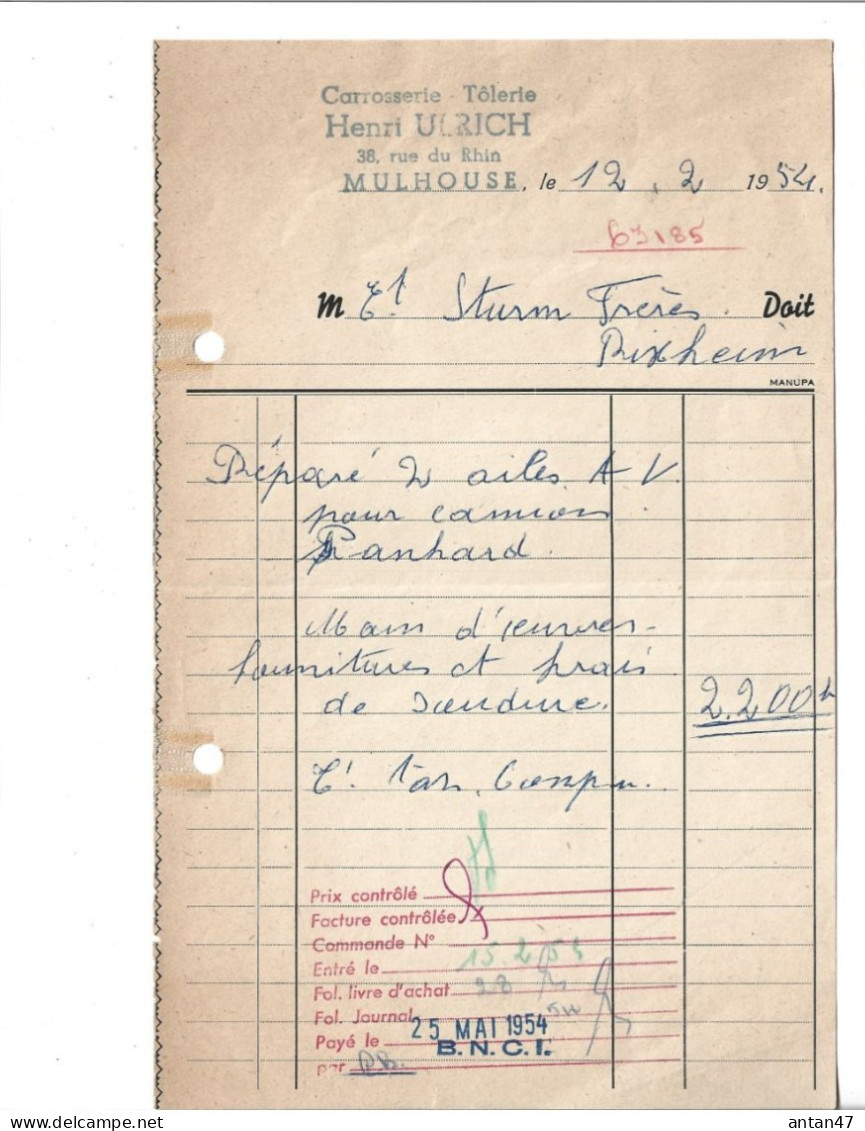 Carrosserie - Tôlerie
Henri ULRICH
38, rue du Rhin
MULHOUSE, le 12.2 1954.
63185
M Et Sturm Frères. Doit
Rixheim
MANUPA
Réparé 2 ailes A V.
pour camion
Panhard.
Main d'œuvres-
fournitures et frais
de soudure. 2.200
Prix contrôlé
Facture contrôlée
Commande N°
Entré le 15.2.54
Fol. livre d'achat 28
Fol. Journal
Payé le 25 MAI 1954
B.N.C.I.
par
antan47